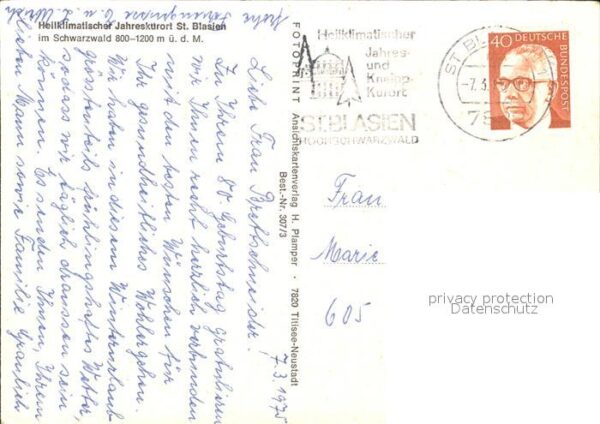 Heilklimatischer Jahreskurort St. Blasien
im Schwarzwald 800–1200 m ü. d. M.
7.3.1975
Liebe Frau Brettschneider.
Zu Ihrem 80. Geburtstag gratulieren
wir Ihnen recht herzlich verbunden
mit den besten Wünschen für
Ihr gesundheitliches Wohlergehen.
Wir hatten in diesem Winterurlaub
grösstenteils frühlingshaftes Wetter,
sodass wir täglich draussen sein
können. Es senden Ihnen, Ihrem
lieben Mann sowie Familie
Frohe
u.
FOTOPRINT Ansichtskartenverlag H. Plamper · 7820 Titisee-Neustadt
Best.-Nr. 307/3
Heilklimatischer
Jahres-
und
Kneipp-
Kurort
ST.BLASIEN
HOCHSCHWARZWALD
ST. BL
-7.3.
78
40 DEUTSCHE
BUNDESPOST
Frau
Marie
605
privacy protection
Datenschutz